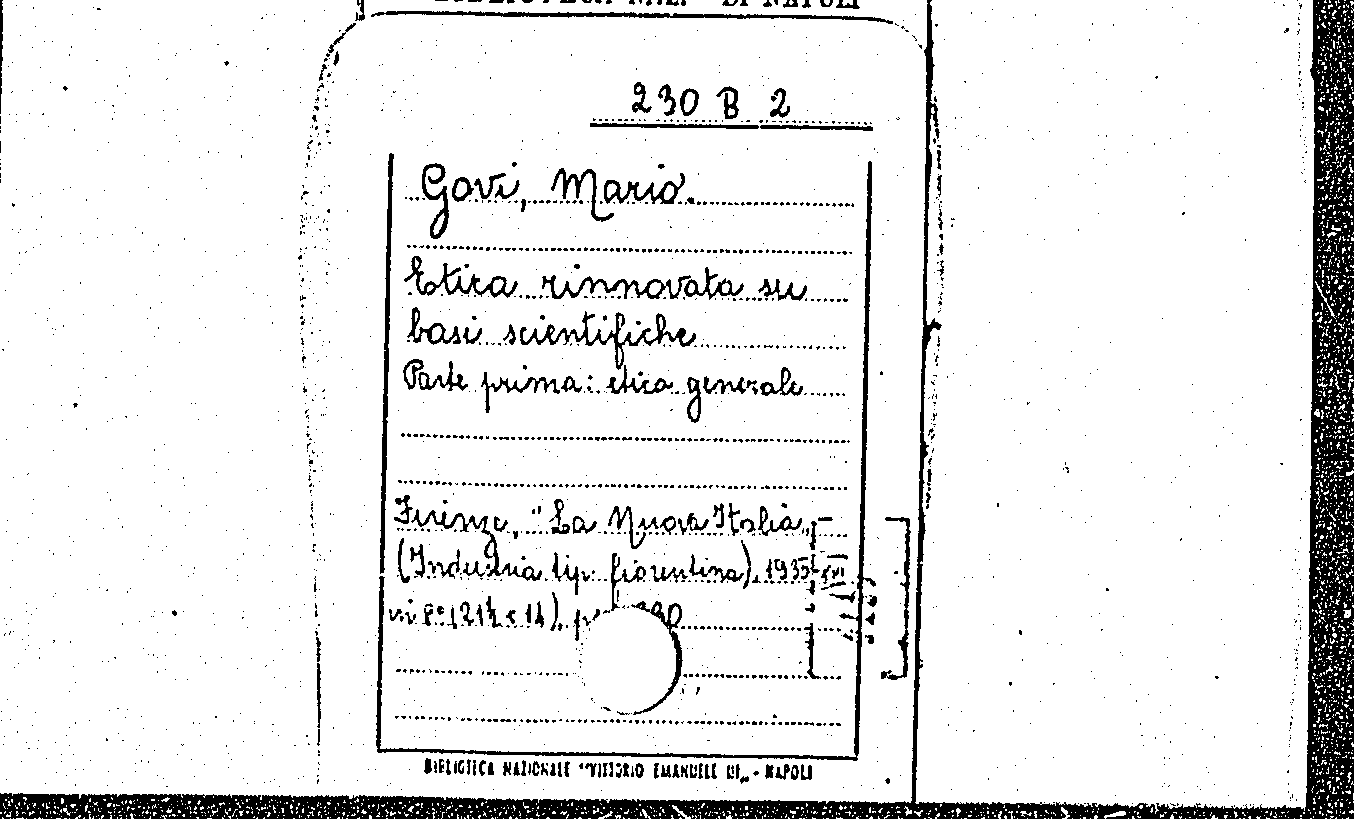 BIBLIOTECA NAZ. DI NAPOLI
230 B 2
Govi, Mario.
Etica rinnovata su
basi scientifiche
Parte prima: etica generale
Firenze, "La Nuova Italia„
(Industria tip. fiorentina), 1933-XVI
in 8° (21½ x 14), 
BIBLIOTECA NAZIONALE "VITTORIO EMANUELE III„ - NAPOLI